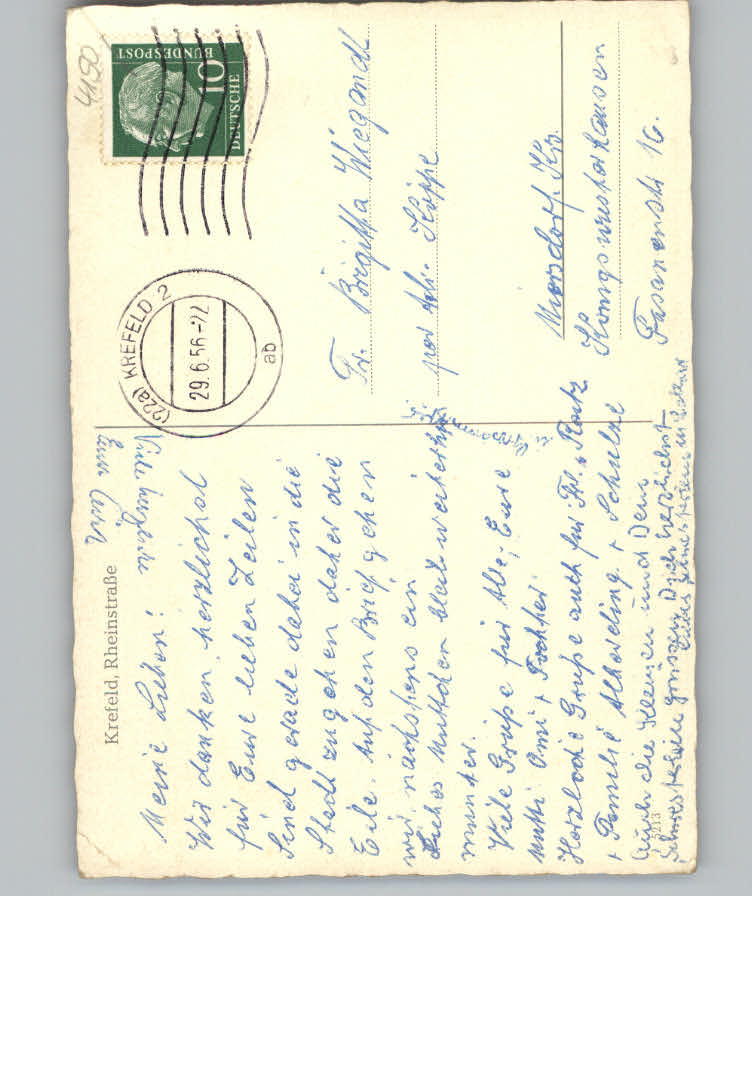 Krefeld, Rheinstraße
Meine Lieben!
Wir danken herzlichst
für Eure lieben Zeilen
Sind gerade dabei in die
Stadt zu gehen daher die
Eile. Auf den Brief gehen
wir nächstens ein
Liebes Muttchen bleib weiterhin
munter.
Viele Grüße für Alle, Eure
Mutti Omi + Tochter
Herzliche Grüße auch für Fr. v.
+ Familie + Schulze
Auch die Kleinen und Dein
Schwesterlein grüssen Dich herzlichst
Viele herzliche
Eure
4180
DEUTSCHE
BUNDESPOST
10
(22a) KREFELD 2
29.6.56-22
ab
Fr. Brigitta Wiegandt
per Adr. Küppe
Miersdorf Kr.
Königswusterhausen
Fasanenstr. 16.
5213